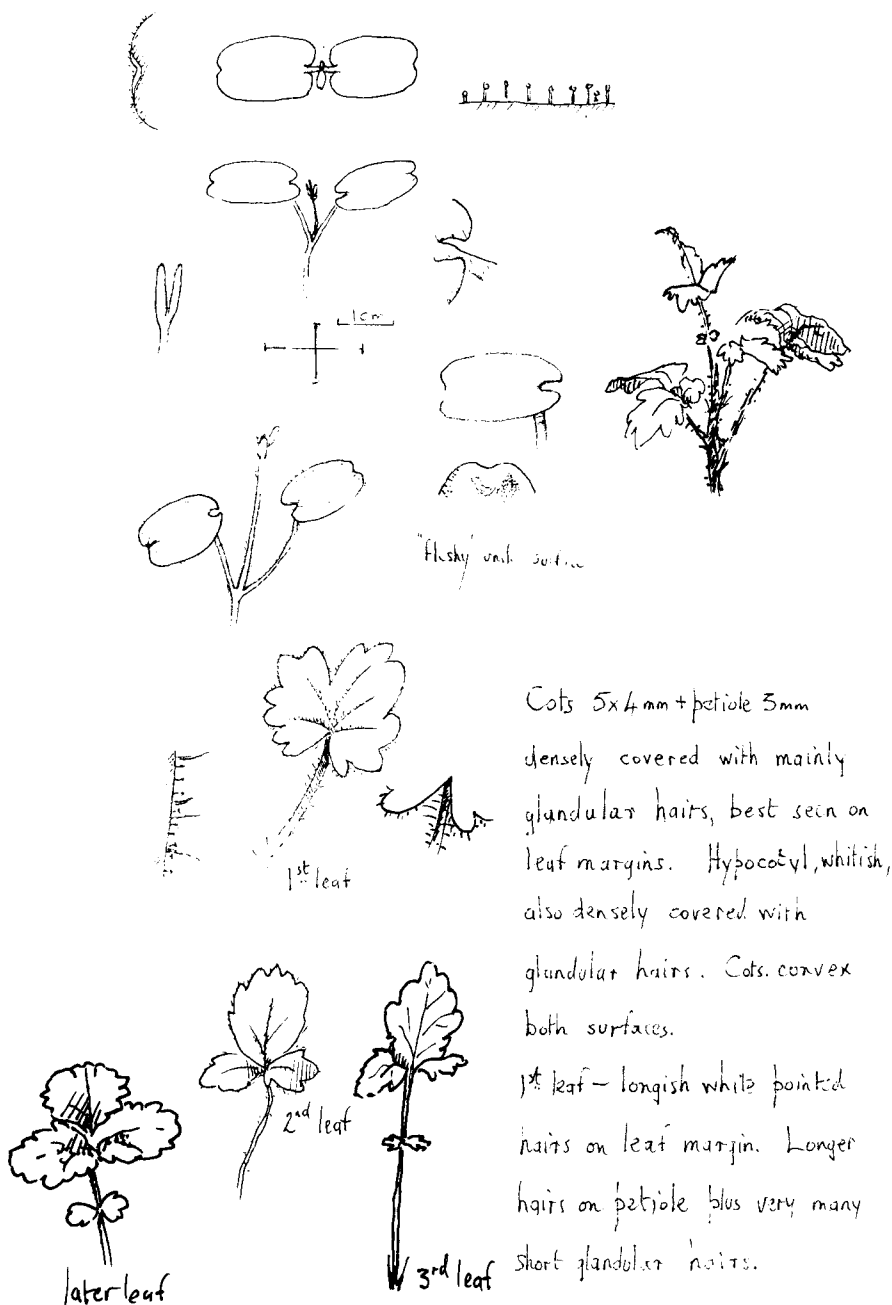 1cm
"fleshy"
Cots 5x4mm + petiole 3mm
densely covered with mainly
glandular hairs, best seen on
leaf margins. Hypocotyl, whitish,
also densely covered with
glandular hairs. Cots. convex
both surfaces.
1st leaf – longish white pointed
hairs on leaf margin. Longer
hairs on petiole plus very many
short glandular hairs.
1st leaf
2nd leaf
3rd leaf
later leaf